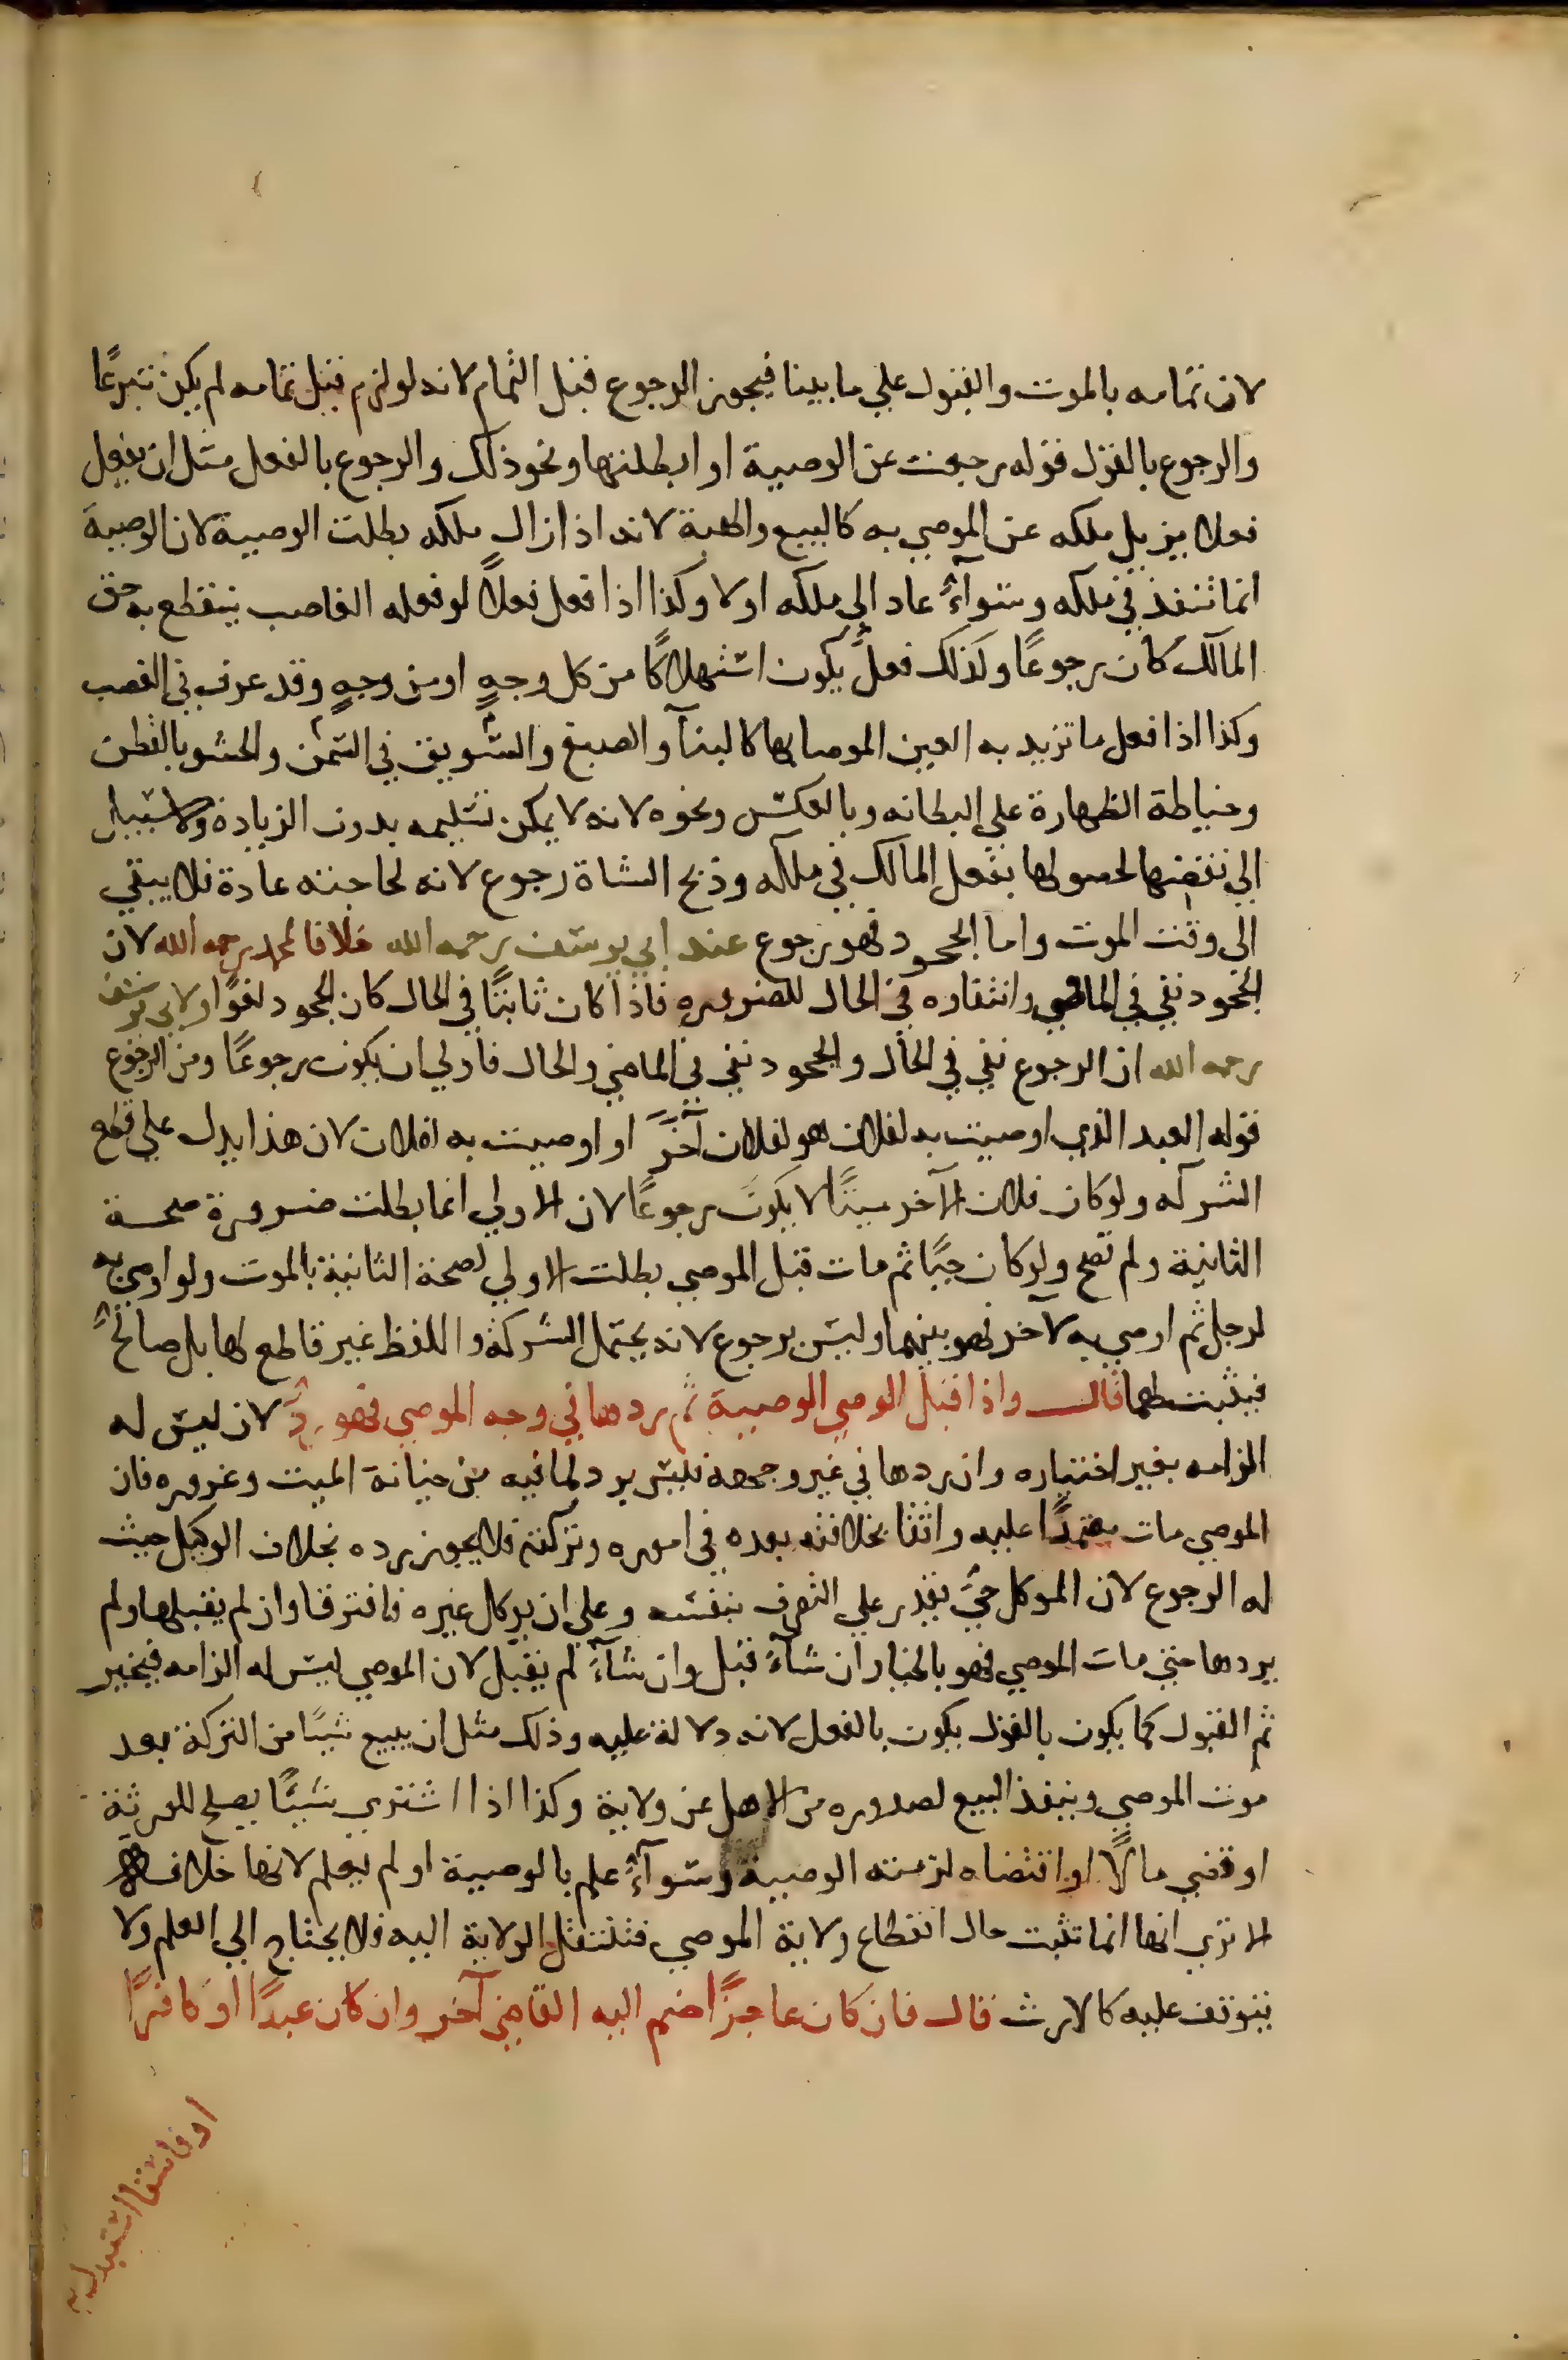 لان تمامه بالموت والقبول علي ما بينا فيجوز الرجوع قبل التمام لانه لو لزم قبل تمامه لم يكن تبرعًا
والرجوع بالقول قوله رجعت عن الوصية او ابطلتها ونحو ذلك والرجوع بالفعل مثل ان يفعل
فعلا يزيل ملكه عن الموصي به كالبيع والهبة لانه اذا زال ملكه بطلت الوصية لان الوصية
انما تنفذ في ملكه وسوآءٌ عاد الي ملكه او لا وكذا اذا فعل فعلاً لو فعله الغاصب ينقطع به حق
المالك كان رجوعًا وكذلك فعلٌ يكون استهلاكًا من كل وجهٍ او من وجهٍ وقد عرف في الغصب
وكذا اذا فعل ما تزيد به العين الموصا بها كالبنآ والصبغ والسويق في السمن والحشو بالقطن
وخياطة الظهارة علي البطانه وبالعكس ونحوه لانه لا يمكن تسليمه بدون الزيادة ولا سبيل
الي نقضها لحصولها بفعل المالك في ملكه وذبح الشاة رجوع لانه لحاجته عادة فلا يبقي
الى وقت الموت واما الجحود فهو رجوع عند ابي يوسف رحمه الله خلافا لمحمد رحمه الله لان
الجحود نفي في الماضي وانتفاره في الحال للضروره فاذا كان ثابتًا في الحال كان الجحود لغوًا ولابي يوسف
رحمه الله ان الرجوع نفي في الحال والجحود نفي في الماضي والحال فاولي ان يكون رجوعًا ومن الرجوع
قوله العبد الذي اوصيت به لفلان هو لفلان آخر او اوصيت به لفلان لان هذا يدل علي قطع
الشركه ولو كان فلان الآخر ميتًا لا يكون رجوعًا لان الاولي انما بطلت ضرورة صحة
الثانية ولم تصح ولو كان حيًا ثم مات قبل الموصي بطلت الاولي لصحة الثانية بالموت ولو اوصي به
لرجل ثم اوصي به لآخر فهو بينهما وليس برجوع لانه يحتمل الشركة واللفظ غير قاطع لها بل صالحٌ
فيثبت لهما قال واذا قبل الوصي الوصية ثم ردها في وجه الموصي فهو ردٌ لان ليس له
الزامه بغير اختياره وان ردها في غير وجهه فليس برد لما فيه من خيانة الميت وغروره فان
الموصي مات معتمدًا عليه واثقا بخلافته بعده في اموره وتركته فلا يجوز رده بخلاف الوكيل حيث
له الرجوع لان الموكل حيٌ يقدر علي التصرف بنفسه وعلي ان يوكل غيره فافترقا وان لم يقبلها ولم
يردها حتي مات الموصي فهو بالخيار ان شآءَ قبل وان شآءَ لم يقبل لان الموصي ليس له الزامه فيخير
ثم القبول كما يكون بالقول يكون بالفعل لانه دلالة عليه وذلك مثل ان يبيع شيئًا من التركة بعد
موت الموصي وينفذ البيع لصدوره من الاهل عن ولاية وكذا اذا اشتري شيئًا يصلح للورثة
او قضي مالاً او اقتضاه لزمته الوصية وسوآءٌ علم بالوصية او لم يعلم لانها خلافة
الا تري انها انما تثبت حال انقطاع ولاية الموصي فتنتقل الولاية اليه فلا يحتاج الي العلم ولا
يتوقف عليه كالارث قال فان كان عاجزًا ضم اليه القاضي آخر وان كان عبدًا او كافرًا
او فاسقا استبدل به